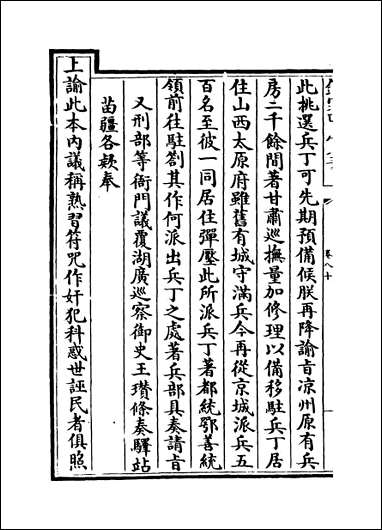 此挑選兵丁可先期預備候朕再降諭旨涼州原有兵
房二千餘間著甘肅巡撫量加修理以備移駐兵丁居
住山西太原府雖舊有城守滿兵今再從京城派兵五
百名至彼一同居住彈壓此所派兵丁著都統鄂善統
領前往駐劄其作何派出兵丁之處著兵部具奏請旨
又刑部等衙門議覆湖廣巡察御史王瓚條奏驛站
苗疆各款奉
上諭此本內議稱熟習符咒作奸犯科惑世誣民者俱照